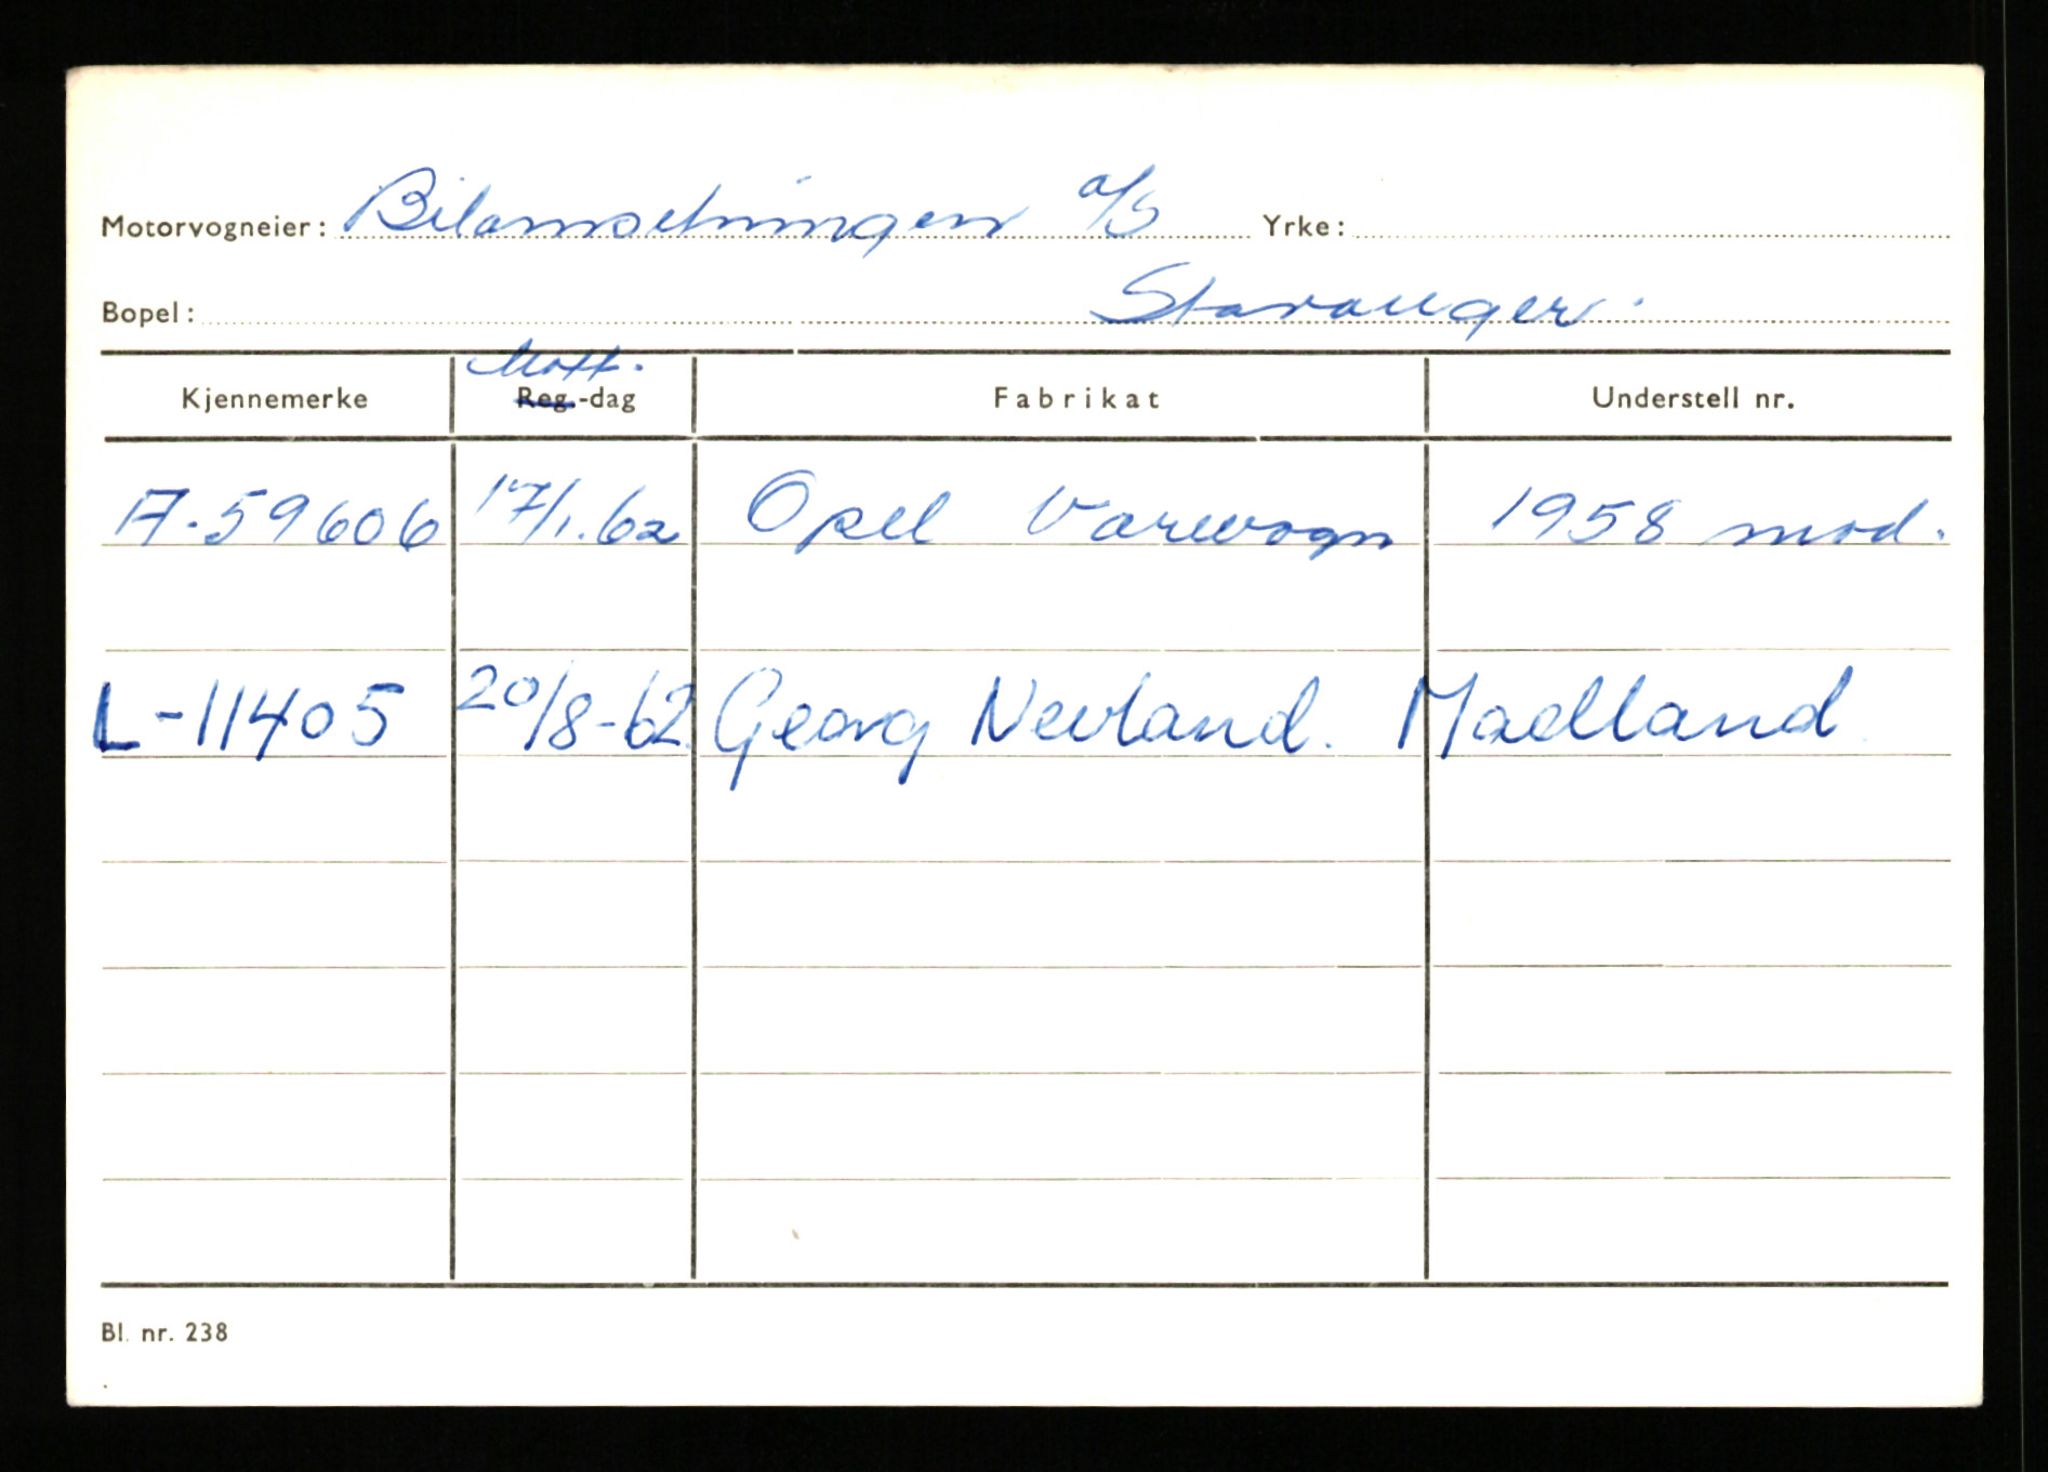 Motorvogneier: Bilomsetningen a/S Yrke:
Bopel: Stavanger.
Mott.
Kjennemerke Reg.-dag Fabrikat Understell nr.
A-59606 17/1.62 Opel Varevogn 1958 mod.
L-11405 20/8-62 Georg Nevland. Madland
Bl. nr. 238